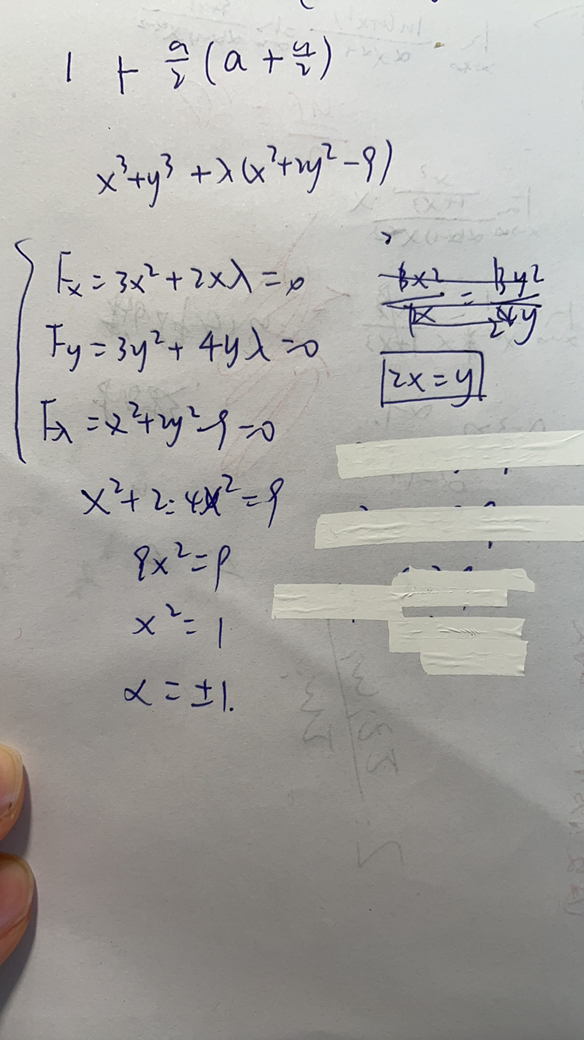 1 + a/2 (a + y/2)
x³+y³ + λ(x²+2y²-9)
Fx = 3x² + 2xλ = 0
Fy = 3y² + 4yλ = 0
Fλ = x²+2y²-9 = 0
3x²/2x = 3y²/4y
2x = y
x² + 2·4x² = 9
9x² = 9
x² = 1
x = ±1.